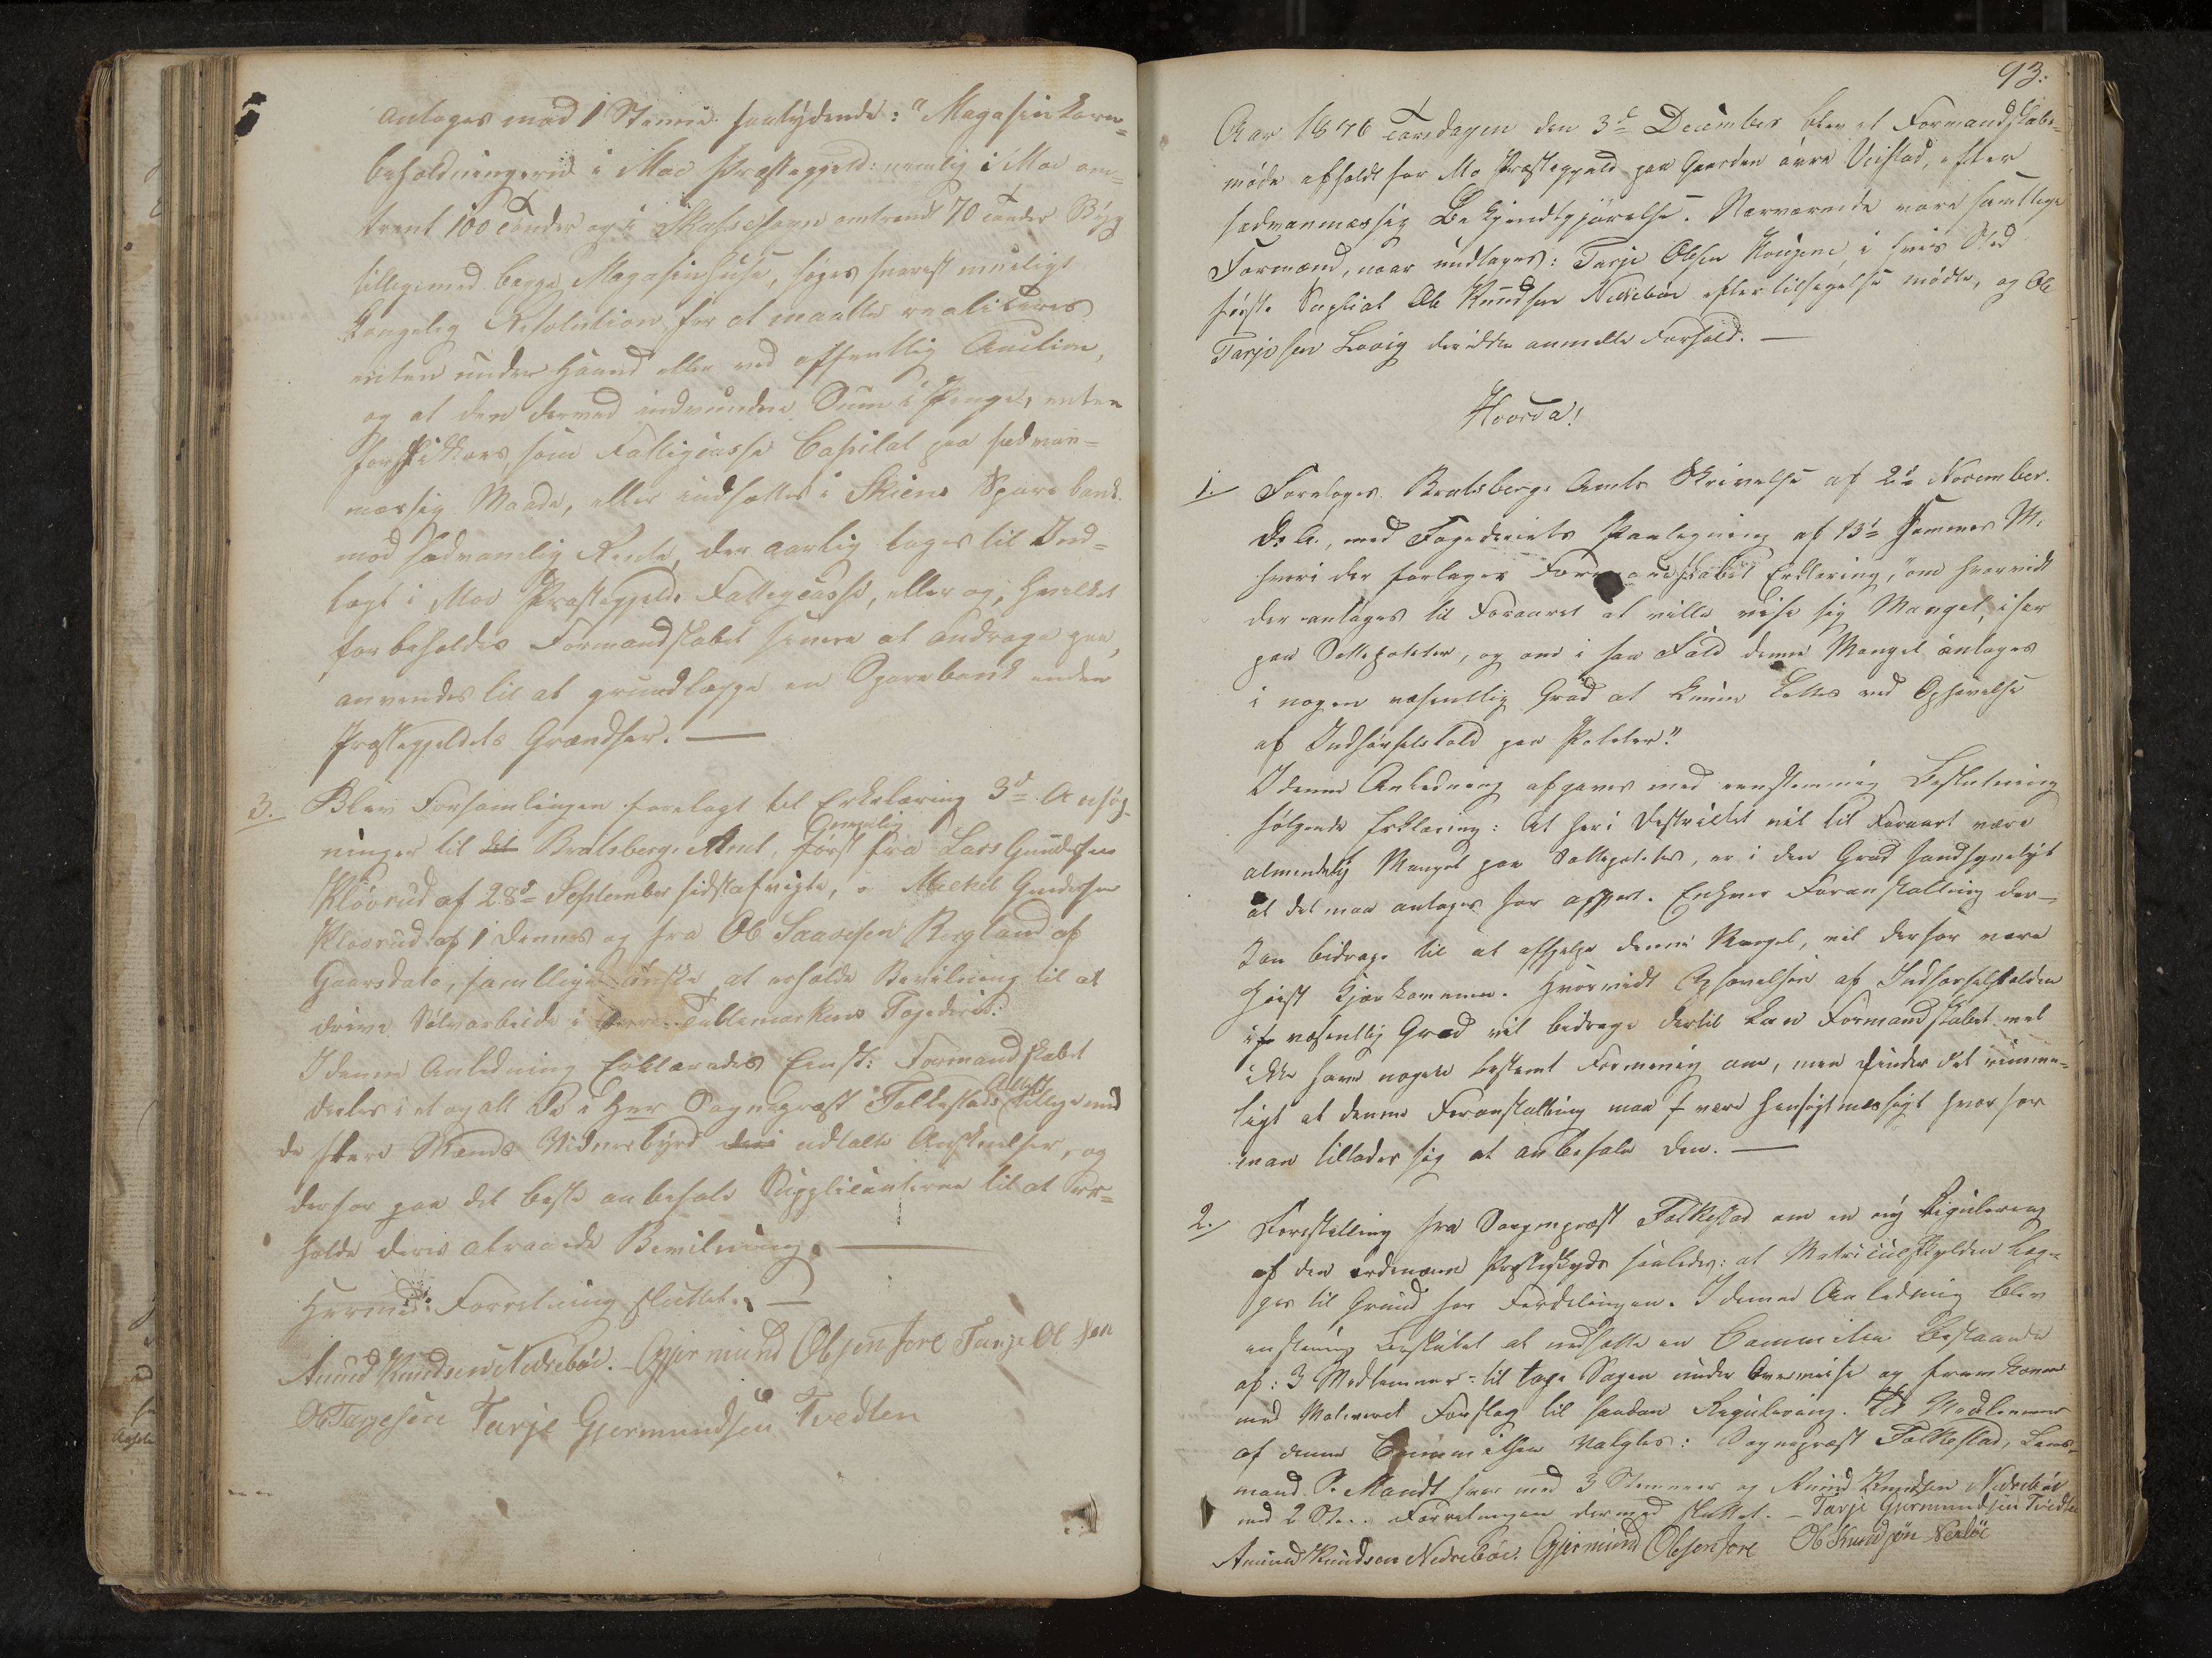 antoges mod 1 Stemme saalydende: "Magasinkorn=
beholdningerne i Moe Præstegjeld: nemlig i Moe om=
trent 100 Tønder og i Skafsesogn omtrendt 70 Tønder Byg
tilligemed begge Magasinhuse, søges snarest mueligt
Kongelig Resolution for at maatte realiseres
enten under Haand eller ved offentlig Auction,
og at den derved indvundne Sum i Penge, enten
som Fattigcasse Capital paa sædvan=
mæssig Maade, eller indsættes i Skiens Sparebank
mod sædvanelig Rente, der aarlig tages til Ind=
tægt i Moe Præstegjelds Fattigcasse, eller og, hvilket
forbeholdes Formandskabet senere at andrage paa,
anvendes til at grundlægge en Sparebank inden
Præstegjeldets Grændser. —
3. Blev Forsamlingen forelagt til Erklæring 3de Ansøg=
ninger til Bratsberg Amt, nemlig først fra Lars Gundersen
Klovrud af 28de September sidstafvigte, Mickel Gundersen
Klovrud af 1 Dennes og fra Ole Saavesen Bergland af
Gaarsdato, samtlige ønske at erholde Bevilning til at
drive Sølvarbeide i Tellemarkens Fogderie.
I denne Anledning Erklæredes Eenst: Formandskabet
deeler i et og alt de i Hr Sognepræst Folkestads Attest tillige med
de flere Mænds Vidnesbyrd udtalte Anskuelser, og
derfor paa det beste anbefale Supplicanterne til at er=
holde deres attraaede Bevilning. —
Hermed Forretning sluttet. —
Amund Knudsen Nedrebøe. Gjermund Olsen Jore Tarje Olsen
Ole Tarjesen Tarje Gjermundsen Tvedten
93.
Aar 1846 Torsdagen den 3de December blev et Formandskabs=
møde afholdt for Mo Præstegjeld paa Gaarden øvre Veistad, efter
sædvanmæssig Bekjendtgjørelse. Nærværende vare samtlige
Formænd, naar undtages: Tarje Olsen Haugene, i hvis Sted
første Supliat Ole Knudsen Nedrebøe efter tilsigelse mødte, og Ole
Tarjesen Lovig der ikke anmeldte Forfald. —
Hvorda!
1. Foretoges Bratsbergs Amts Skrivelse af 2de November
d. A., med Fogderiets Paategning af 13de samme M.
hvori der forlanges Formandskabets Erklæring, "om hvorvidt
der antages til Foraaret at ville vise sig Mangel, især
paa Sættepoteter, og om i saa Fald denne Mangel antages
i nogen væsentlig Grad at kunne lettes ved Ophævelse
af Indførselstold paa Poteter."
I denne Anledning afgaves med eenstemmig Beslutning
følgende Erklæring: At her i Destriktet vil til Foraart være
almindelig Mangel paa Sættepoteter, er i den Grad sandsynligt
at det maa antages for afgjort. Enhver Foranstaltning der
kan bidrage til at afhjelpe denne Mangel, vil derfor være
høist kjærkommen. Hvorvidt Ophævelsen af Indførselstolden
i væsentlig Grad vil bidrage dertil kan Formandskabet vel
ikke have nogen bestemt Formening om, men finder det rimme=
ligt at denne Foranstaltning maa være hensigtmæssigt hvorfor
man tillader sig at anbefale den. —
2. Forestilling fra Sognepræst Folkestad om en ny Regulering
af den ordinære Præsteskyds saaledes: at Matriculskylden læg=
ges til Grund for Fordelingen. I denne Anledning blev
enstemig besluttet at nedsætte en Commitee bestaaende
af: 3 Medlemmer: til tage Sagen under Overveielse og fremkomme
med Motiveret Forslag til saadan Regulering. Til Medlemmer
af denne Committee valgtes: Sognepræst Folkestad, Lens=
mand S. Mandt hver med 3 Stemmer og Amund Knudsen Nedrebøe
med 2 St.. Forretningen dermed sluttet. — Tarje Gjermundsen Tvedten
Amund Knudsen Nedrebøe. Gjermund Olsen Jore Ole Knudsøn Nerbøe